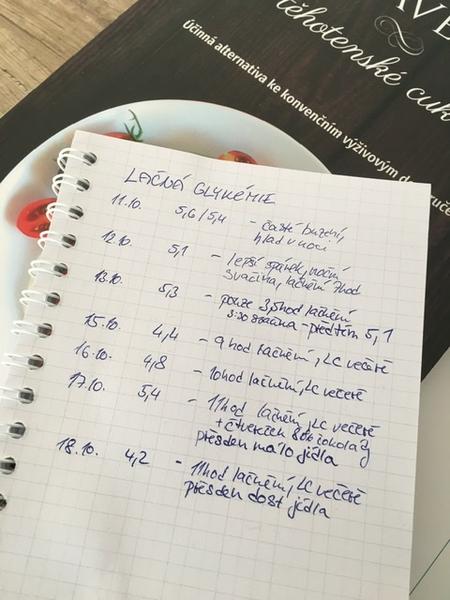 těhotenské cuk
Účinná alternativa ke konvenčním výživovým d
LAČNÁ GLYKÉMIE
11.10. 5,6/5,4 - časté buzení,
hlad v noci
12.10. 5,1 - lepší spánek, noční
svačina, lačnění 7hod
13.10. 5,3 - pouze 3,5hod lačnění
3:30 svačina - předtím 5,1
15.10. 4,4 - 9hod lačnění, LC večeře
16.10. 4,8 - 10hod lačnění, LC večeře
17.10. 5,4 - 11hod lačnění, LC večeře
+ čtvereček 80% čokolády
přesden málo jídla
18.10. 4,2 - 11hod lačnění, LC večeře
přesden dost jídla